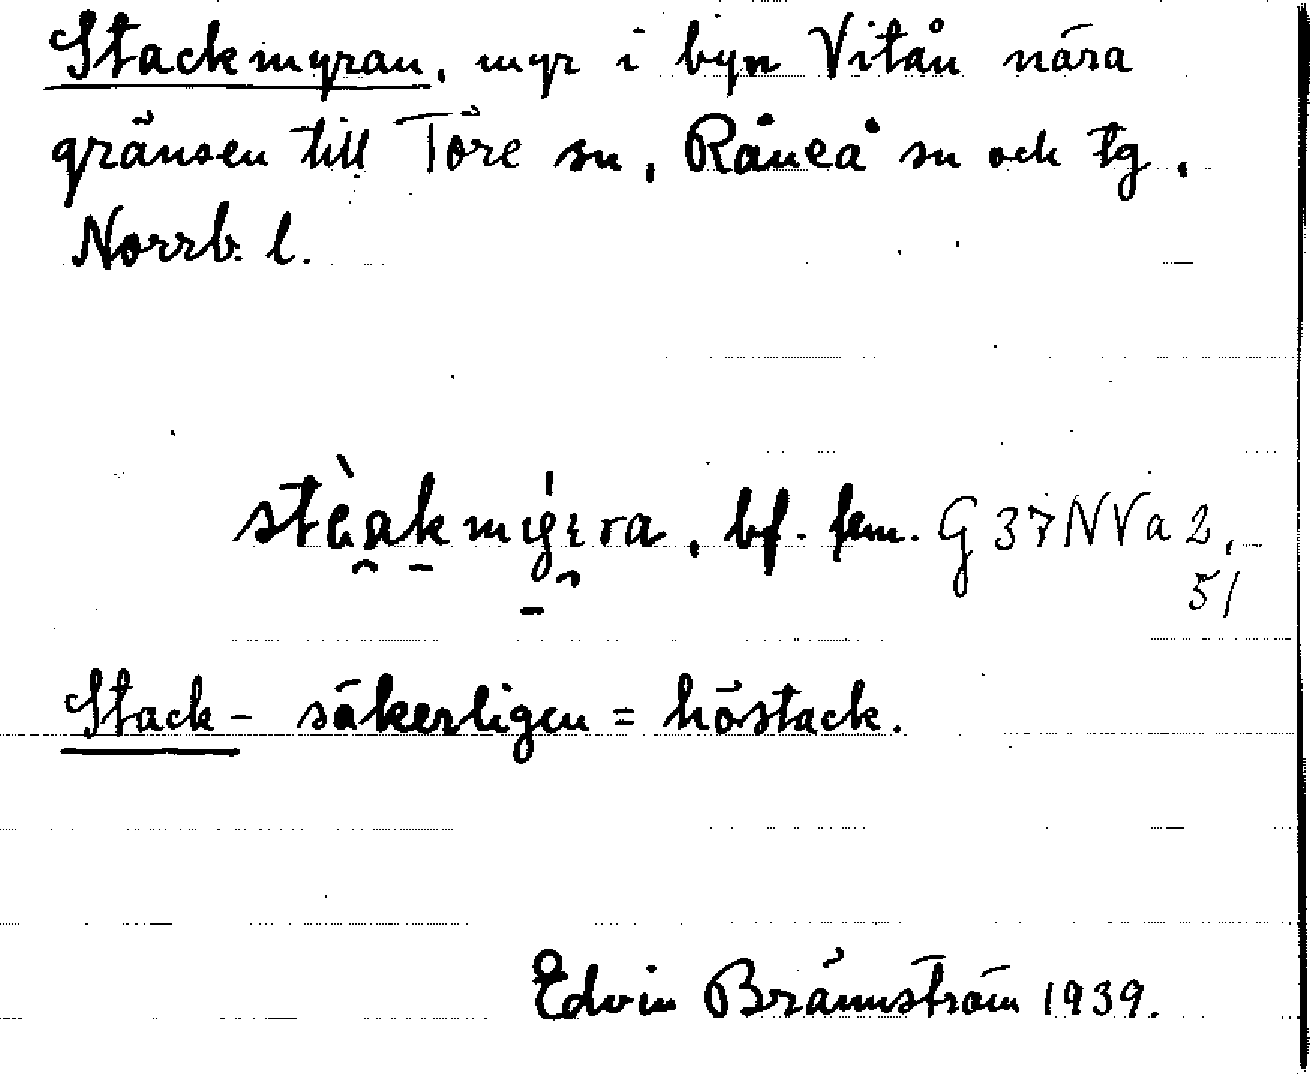 Stackmyran, myr i byn Vitån nära
gränsen till Töre sn, Råneå sn och tg,
Norrb. l.
bf. fem. G 37 NV a 2,
51
Stack- säkerligen = höstack.
Edvin Brännström 1939.